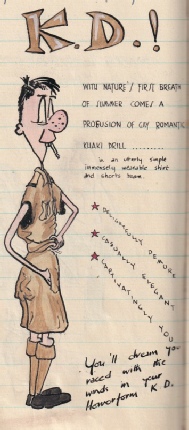 K.D.!
WITH NATURE'S FIRST BREATH
OF SUMMER COMES A
PROFUSION OF GAY ROMANTIC
KHAKI DRILL .........
in an utterly simple
immensely wearable shirt
and shorts team.
★ DELIGHTFULLY DEMURE
★ CASUALLY ELEGANT
★ CAPTIVATINGLY YOU
You'll dream you
raced with the
winds in your
K D.